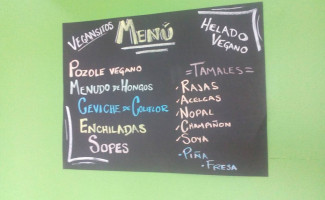 VEGANSITOS
MENÚ
POZOLE VEGANO
MENUDO DE HONGOS
CEVICHE DE COLIFLOR
ENCHILADAS
SOPES
HELADO
VEGANO
=TAMALES=
-RAJAS
-ACELGAS
-NOPAL
-CHAMPIÑON
-SOYA
-PIÑA
-FRESA